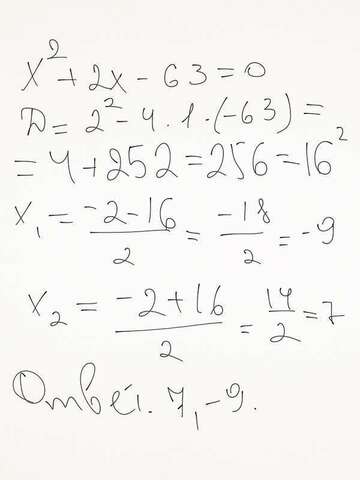 x² + 2x - 63 = 0
D = 2² - 4 · 1 · (-63) =
= 4 + 252 = 256 = 16²
x₁ = (-2 - 16)/2 = -18/2 = -9
x₂ = (-2 + 16)/2 = 14/2 = 7
Ответ. 7, -9.